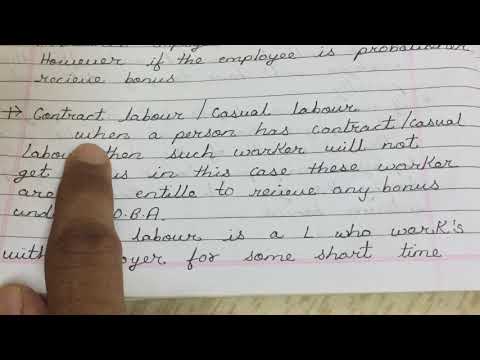 However if the employee is probationar
recieve bonus
→ Contract labour / Casual labour
when a person has contract/casual
Labour then such worker will not
get us in this case these worker
are entille to recieve any bonus
und O.B.A.
labour is a L who work's
with oyer for some short time